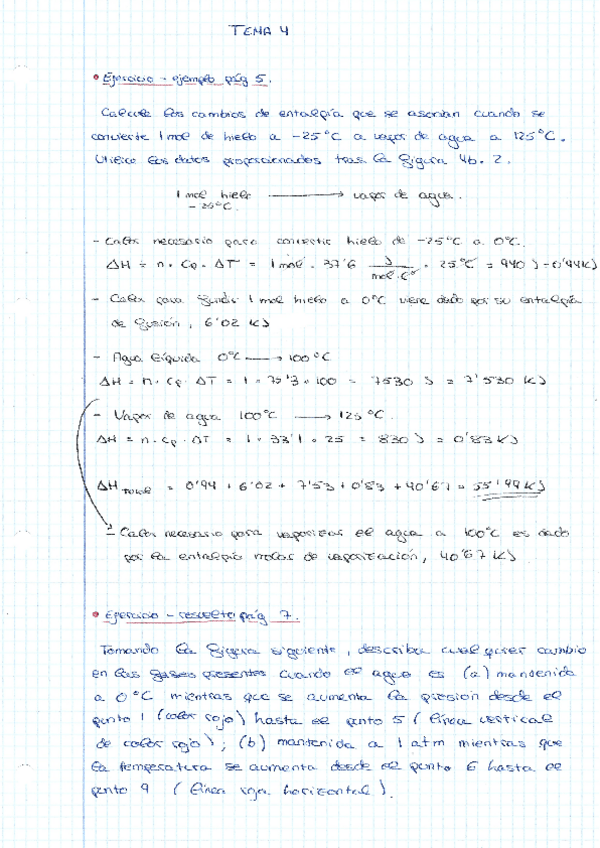 TEMA 4
• Ejercicio - ejemplo pág 5.
Calcule los cambios de entalpía que se asocian cuando se
convierte 1 mol de hielo a -25°C a vapor de agua a 125°C.
Utilice los datos proporcionados tras la figura 4b.2.
1 mol hielo ⟶ vapor de agua.
-25°C.
- Calor necesario para convertir hielo de -25°C a 0°C.
ΔH = n · Cp · ΔT = 1 mol · 37'6 J/mol·C° · 25°C = 940 J = 0'94 KJ
- Calor para fundir 1 mol hielo a 0°C viene dado por su entalpía
de fusión, 6'02 KJ
- Agua líquida 0°C ⟶ 100°C
ΔH = n · Cp · ΔT = 1 · 75'3 · 100 = 7530 J = 7'530 KJ
- Vapor de agua 100°C ⟶ 125°C.
ΔH = n · Cp · ΔT = 1 · 33'1 · 25 = 830 J = 0'83 KJ
ΔH TOTAL = 0'94 + 6'02 + 7'53 + 0'83 + 40'67 = 55'99 KJ
- Calor necesario para vaporizar el agua a 100°C es dado
por la entalpía molar de vaporización, 40'67 KJ
• Ejercicio - resuelto pág 7.
Tomando la figura siguiente, describa cualquier cambio
en las fases presentes cuando el agua es (a) mantenida
a 0°C mientras que se aumenta la presión desde el
punto 1 (color rojo) hasta el punto 5 (línea vertical
de color rojo); (b) mantenida a 1 atm mientras que
la temperatura se aumenta desde el punto 6 hasta el
punto 9 (línea roja horizontal).